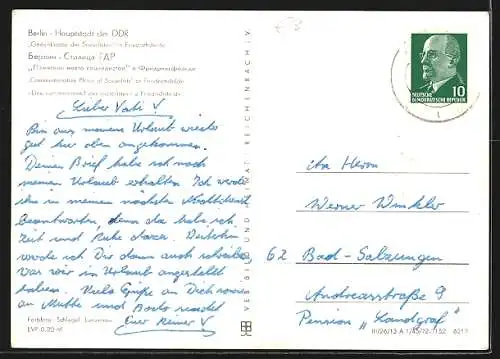 Berlin - Hauptstadt der DDR
„Gedenkstätte der Sozialisten" in Friedrichsfelde
Берлин - Столица ГДР
„Памятное место социалистов" в Фридрихсфельде
„Commemorative Place of Socialists" at Friedrichsfelde
Lieber Vati!
Bin aus meinem Urlaub wieder
gut hier oben angekommen.
Deinen Brief habe ich nach
meinem Urlaub erhalten. Ich werde
ihn in meiner nächsten
beantworten, denn da habe ich
Zeit und Ruhe dazu. Weiterhin
werde ich Dir dann auch schreiben,
was wir im Urlaub angestellt
haben. Viele Grüße an Dich sowie
an Mutti und
Euer Reiner
Farbdia: Schlegel,
EVP 0,20 M
VERLAG UND HEIMAT REICHENBACH I. V.
10
DEUTSCHE
DEMOKRATISCHE REPUBLIK
Herrn
Werner Winkler
62 Bad-Salzungen
Andreasstraße 9
Pension „Landgraf"
III/26/13 A 1/45/72 1152 6217